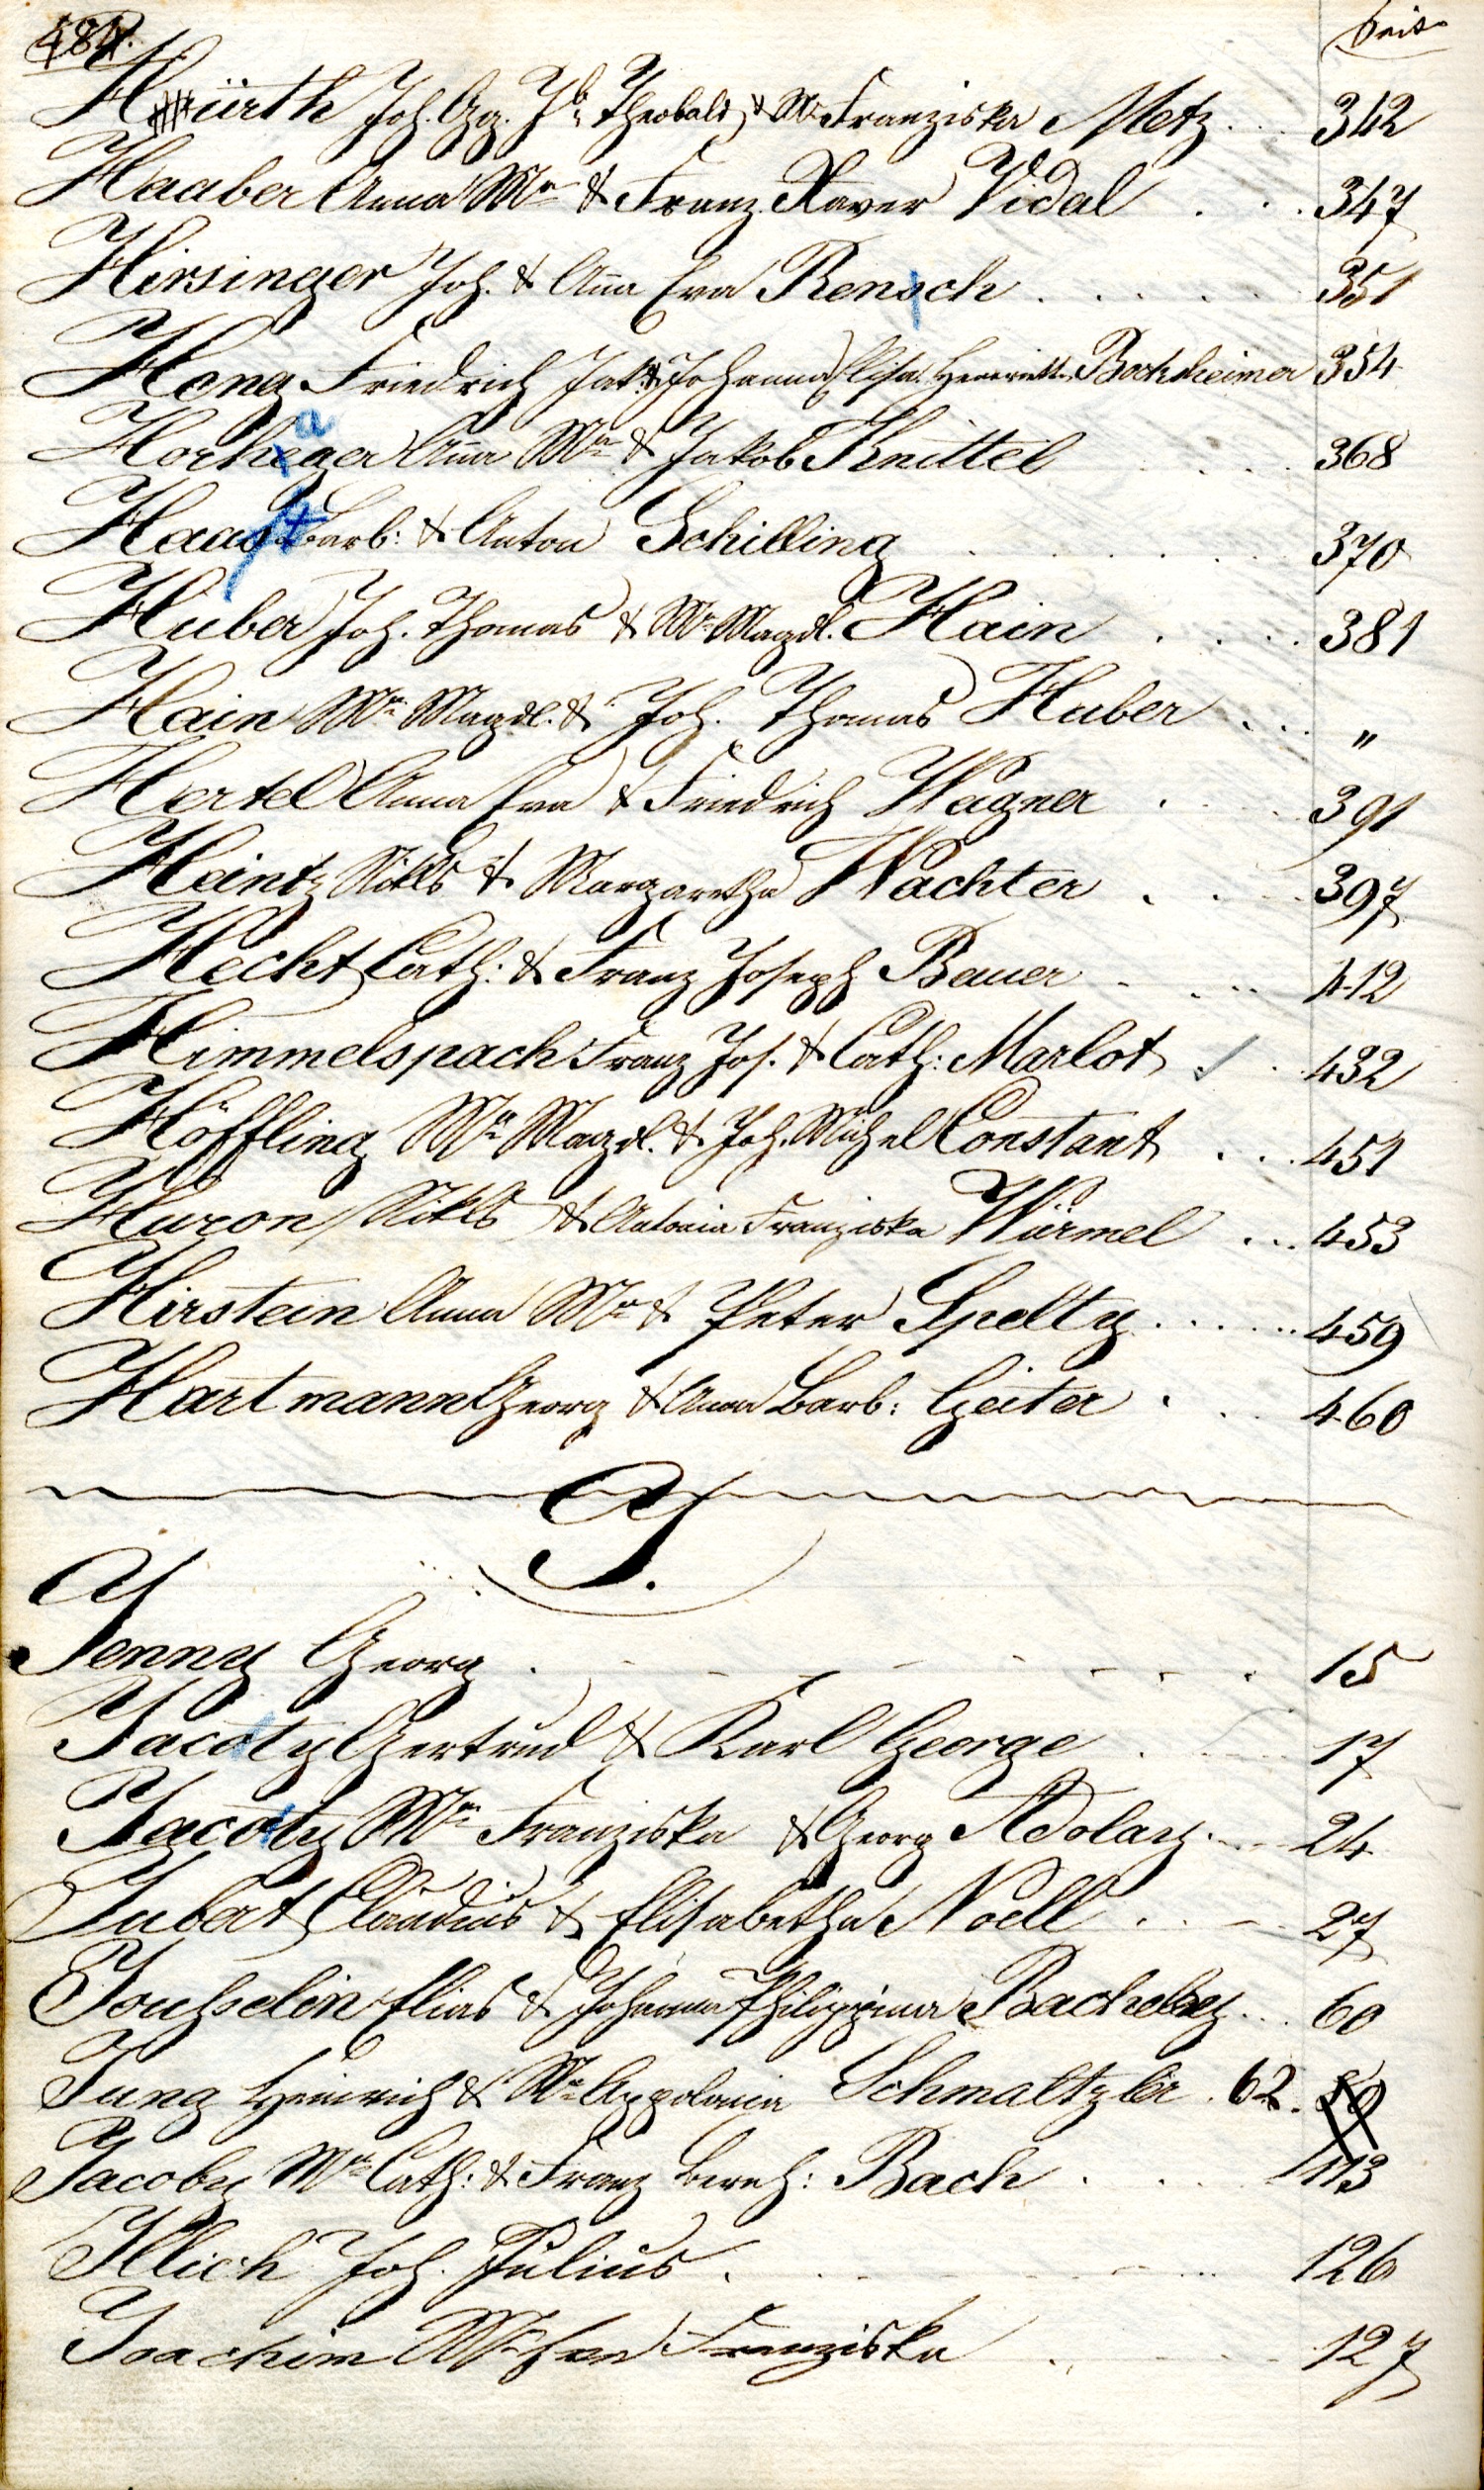 484.
Seite
Hürth Joh. Gg. Jb. Theobald & Mr. Franziska Metz . . 342
Haaber Anna Mra & Franz Xaver Vidal . . . 347
Hirsinger Joh. & Ana Eva Rensch . . . . . . 351
Hong Friedrich Jak. & Johanna Elisa. Henriette Bockheimer 354
a
Horheger Ana Mra & Jakob Knittel . . . 368
Haas Barb: & Anton Schilling . . . . . 370
Huber Joh. Thomas & Mr. Magdl. Hain . . . . 381
Hain Mra Magdl. & Joh. Thomas Huber . . . "
Hertel Anna Eva & Friedrich Wagner . . . 391
Heintz Nikls & Margaretha Wachter . . . 397
Hecht Cath: & Franz Joseph Bauer . . . . 412
Himmelspach Franz Jos. & Cath: Marlot . . 432
Höffling Mra Magdl. & Joh. Michel Constant . . . 451
Huron Nikls & Antonia Franziska Würmel . . . 453
Hirstein Anna Mra & Peter Speltz . . . . . . 459
Hartmann Georg & Anna Barb: Geiter . . . 460
J.
Jenny Georg . . . . . . . . . 15
Jacoty Gertrud & Karl George . . . 17
Jacoty Mra Franziska & Georg Adolay . . . 24
Jubert Claudius & Elisabetha Noell . . . 27
Joußelin Elias & Johanna Philippina Bachelez . . . 60
Jung Heinrich & Mra Appolonia Schmaltzler . 62.
Jacoby Mra Cath: & Franz Bernh: Bach . . . . 113
Illich Joh. Julius . . . . . . 126
Joachim Mr. Eva Franziska . . . . 127